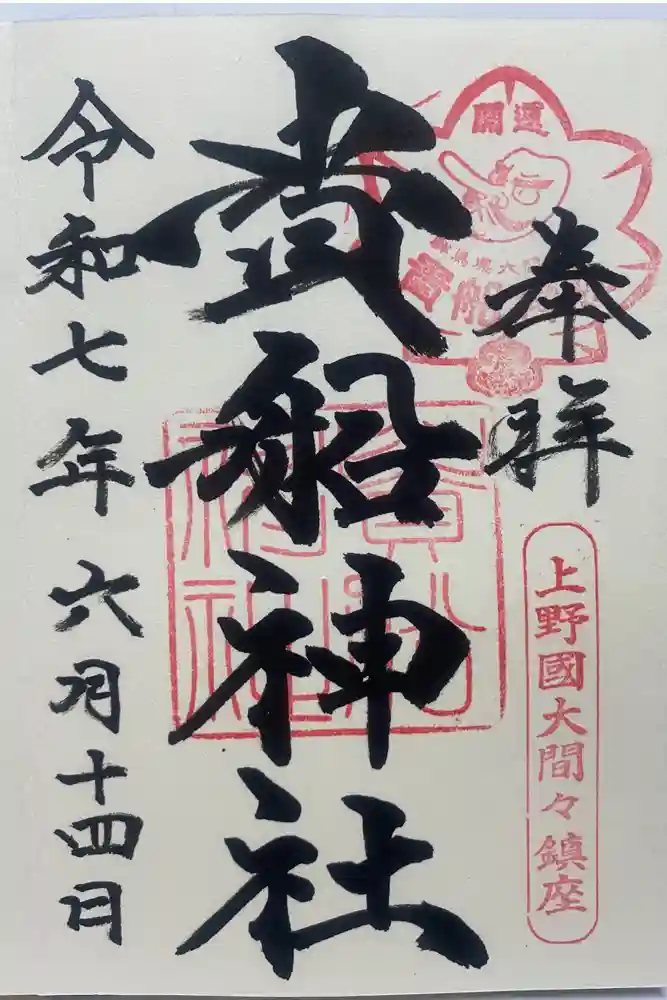 奉拝
開運
貴船
上野國大間々鎮座
貴船神社
令和七年六月十四日